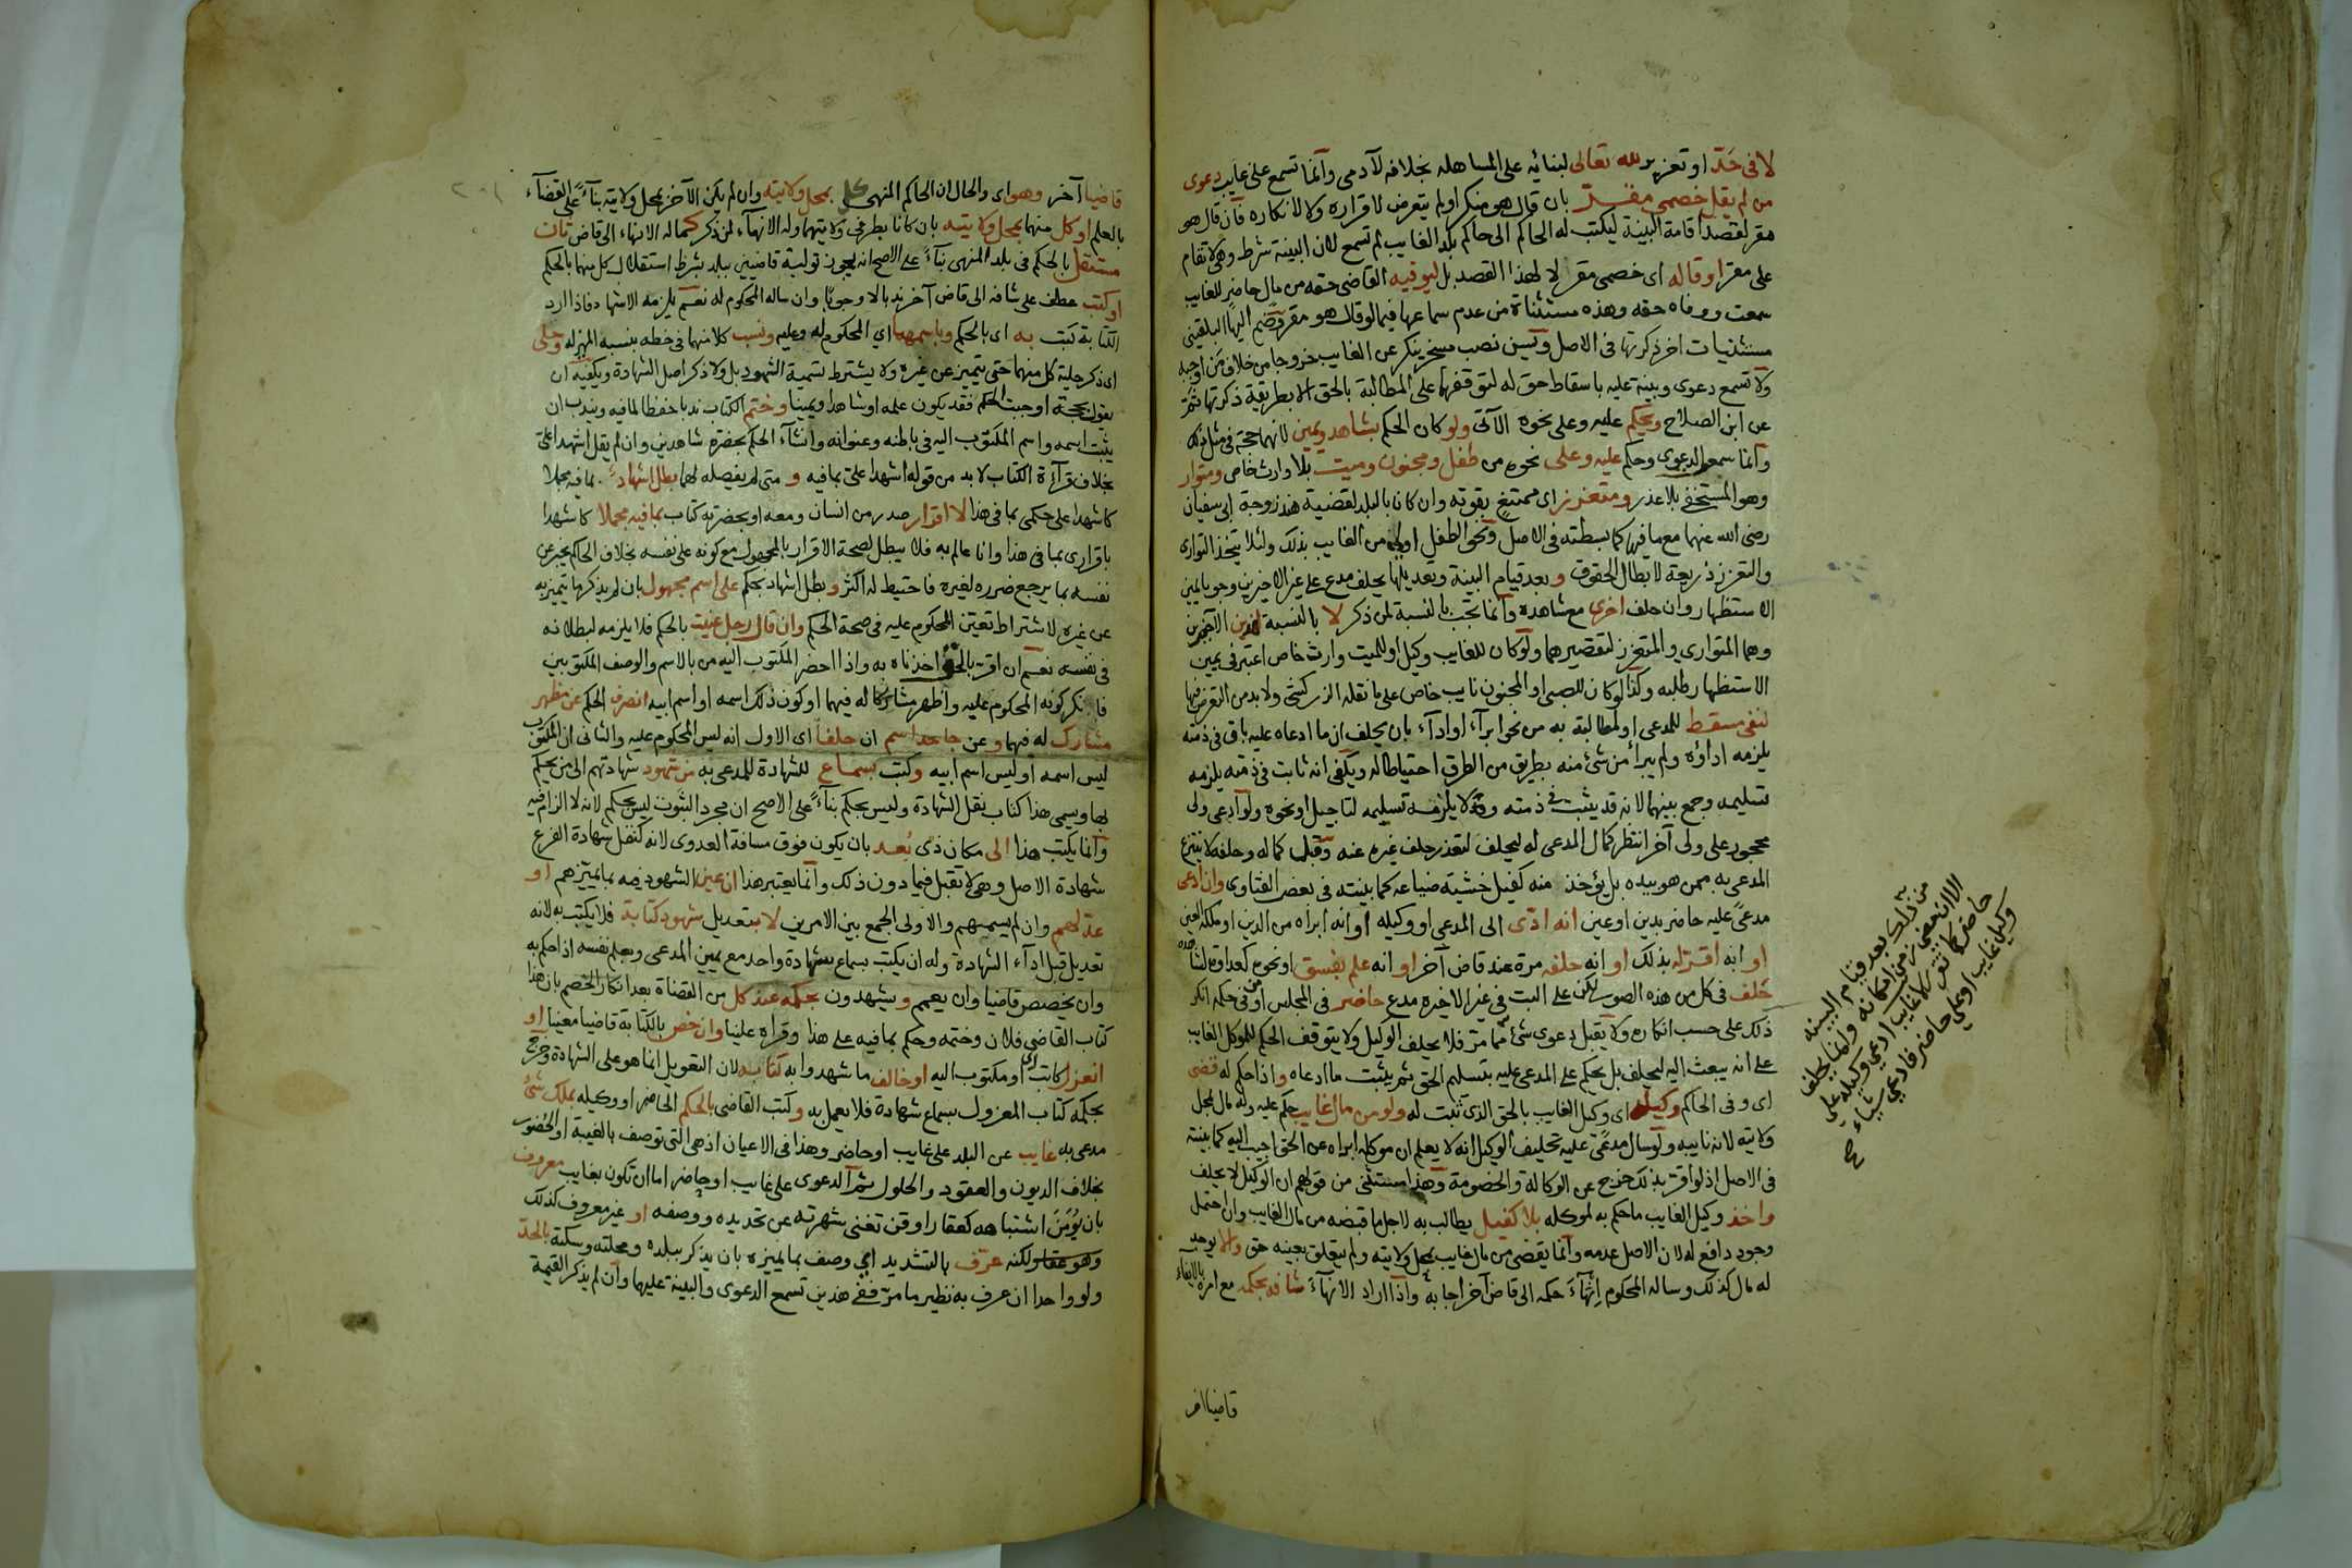 لا في حد او تعزير لله تعالى لبنائه على المساهلة بخلافه لآدمي وانما تسمع على غايب دعوى
من لم يقل خصمي مقر بان قال هو منكر او لم يتعرض لاقراره ولا لانكاره فان قال هو
مقر لقصد اقامة البينة ليكتب له الحاكم الى حاكم بلد الغايب لم تسمع لان البينة شرط وهي لا تقام
على مقر او قاله اى خصمي مقر لا لهذا القصد بل ليوفيه القاضي حقه من مال حاضر للغايب
سمعت ووفاه حقه وهذه مستثناة من عدم سماعها فيما لو قال هو مقر وضم اليها البلقيني
مستثنيات اخر ذكرتها في الاصل وتسن نصب مسخر ينكر عن الغايب خروجا من خلاف من اوجبه
ولا تسمع دعوى وبينة عليه باسقاط حق له لتوقفها على المطالبة بالحق الا بطريقة ذكرتها ثم
عن ابن الصلاح ويحكم عليه وعلى نحوه الآتي ولو كان الحكم بشاهد ويمين لانهما حجة في مثل ذلك
وانما سمع الدعوى وحكم عليه وعلى نحوه من طفل ومجنون وميت بلا وارث خاص ومتوار
وهو المستخفي بلا عذر ومتعزز اى ممتنع بقوته وان كانا بالبلد لقضية هند زوجة ابي سفيان
رضى الله عنهما مع ما فيها كما بسطته في الاصل ونحو الطفل اولى من الغايب بذلك ولئلا يتخذ التوارى
والتعزز ذريعة لابطال الحقوق وبعد قيام البينة وتعديلها يحلف مدع على غير الاخيرين وجوبا يمين
الاستظهار وان حلف اخرى مع شاهده وانما تجب بالنسبة لمن ذكر لا بالنسبة لهذين الآخيرين
وهما المتوارى والمتعزز لتقصيرهما ولو كان للغايب وكيل او للميت وارث خاص اعتبر في يمين
الاستظهار طلبه وكذا لو كان للصبي او المجنون نايب خاص على ما نقله الزركشي ولا بد من التعرض فيها
لنفي مسقط للمدعى او لمطالبة به من نحو ابراء او اداء بان يحلف ان ما ادعاه عليه باق في ذمته
يلزمه اداؤه ولم يبرأ من شئ منه بطريق من الطرق احتياطا له ويكفي انه ثابت في ذمته يلزمه
تسليمه وجمع بينهما لانه قد يثبت في ذمته ولا يلزمه تسليمه لتاجيل او نحوه ولو ادعى ولى
محجور على ولى آخر انتظر كمال المدعى له ليحلف لتعذر حلف غيره عنه وقبل كماله وحلفه لا ينتزع
المدعى به ممن هو بيده بل يؤخذ منه كفيل خشية ضياعه كما بينته في بعض الفتاوى وان ادعى
مدعى عليه حاضر بدين او عين انه ادى الى المدعي او وكيله او انه ابراه من الدين او ملكه العين
او انه اقر له بذلك او انه حلفه مرة عند قاض آخر او انه علم بفسق او نحوه كعداوة لشاهده
حلف في كل من هذه الصور لكن على البت في غير الاخيرة مدع حاضر في المجلس او في حكمه انكر
ذلك على حسب انكاره ولا يقبل دعوى شئ مما مر فلا يحلف الوكيل ولا يتوقف الحكم للموكل الغايب
على انه يبعث اليه ليحلف بل يحكم على المدعى عليه بتسليم الحق ثم يثبت ما ادعاه واذا حكم له قضى
اى وفى الحاكم وكيله اى وكيل الغايب بالحق الذي ثبت له ولو من مال غايب حكم عليه وله مال بمحل
ولايته لانه نايبه ولو سال مدعى عليه تحليف الوكيل انه لا يعلم ان موكله ابراه عن الحق اجيب اليه كما بينته
في الاصل اذ لو اقر بذلك خرج عن الوكالة والخصومة وهذا مستثنى من قولهم ان الوكيل لا يحلف
واخذ وكيل الغايب ما حكم به لموكله بلا كفيل يطالب به لاجل ما قبضه من مال الغايب وان احتمل
وجود دافع له لان الاصل عدمه وانما يقضى من مال غايب بمحل ولايته ولم يتعلق بعينه حق والا يوجد
له مال كذلك وساله المحكوم انهاء حكمه الى قاض آخر اجابه واذا اراد الانهاء شافه بحكمه مع امره بالايفاء
قاضيا اخر
من ذلك بعد قيام البينة
الا ان مضى زمن امكانه وانما يحلف
حاضر كما تقرر لا غايب ادعى وكيله على
وكيل غايب او على حاضر فادعى شيئا
قاضيا آخر وهو اى والحال ان الحاكم المنهى كل بمحل ولايته وان لم يكن الآخر بمحل ولايته بناء على القضاء
بالعلم او كل منهما بمحل ولايته بان كانا بطرفي ولايتيهما وله الانهاء لمن ذكر كما له الانهاء الى قاض ثان
مستقل بالحكم في بلد المنهى بناء على الاصح انه يجوز تولية قاضيين ببلد بشرط استقلال كل منهما بالحكم
او كتب عطف على شافه الى قاض آخر ندبا لا وجوبا وان ساله المحكوم له نعم يلزمه الاشهاد فاذا اراد
الكتابة كتب به اى بالحكم وباسمهما اي المحكوم له وعليه ونسب كلا منهما في خطه بنسبه المميز له وحلى
اى ذكر حلية كل منهما حتى يتميز عن غيره ولا يشترط تسمية الشهود بل ولا ذكر اصل الشهادة ويكفيه ان
يقول بحجة اوجبت الحكم فقد يكون علمه او شاهدا ويمينا وختم الكتاب ندبا حفظا لما فيه ويندب ان
يثبت اسمه واسم المكتوب اليه في باطنه وعنوانه وانشاء الحكم بحضرة شاهدين وان لم يقل اشهدا على
بخلاف قراءة الكتاب لا بد من قوله اشهدا على بما فيه و متى لم يفصله لهما بطل اشهاد بما فيه مجملا
كاشهدا على حكمي بما في هذا لا اقرار صدر من انسان ومعه او بحضرته كتاب بما فيه مجملا كاشهدا
باقرارى بما في هذا وانا عالم به فلا يبطل لصحة الاقرار بالمجهول مع كونه على نفسه بخلاف الحاكم يخبر عن
نفسه بما يرجع ضرره لغيره فاحتيط له اكثر وبطل اشهاد بحكم على اسم مجهول بان لم يذكر ما يتميز به
عن غيره لاشتراط تعين المحكوم عليه في صحة الحكم وان قال رجل عنيت بالحكم فلا يلزمه لبطلانه
في نفسه نعم ان اقر بالحق اخذناه به واذا احضر المكتوب اليه من بالاسم والوصف المكتوبين
فانكر كونه المحكوم عليه واظهر مشاركا له فيهما او كون ذلك اسمه او اسم ابيه انصرف الحكم عن مظهر
مشارك له فيهما وعن جاحد اسم ان حلفا اى الاول انه ليس المحكوم عليه والثاني ان المكتوب
ليس اسمه او ليس اسم ابيه وكتب بسماع للشهادة للمدعى به من شهود شهادتهم الى من يحكم
بها ويسمى هذا كتاب نقل الشهادة وليس بحكم بناء على الاصح ان مجرد الثبوت ليس بحكم لانه لا الزام فيه
وانما يكتب هذا الى مكان ذى بعد بان يكون فوق مسافة العدوى لانه كنقل شهادة الفرع
شهادة الاصل وهي لا تقبل فيما دون ذلك وانما يعتبر هذا ان عين الشهود فيه بما يميزهم او
عدلهم وان لم يسميهم والاولى الجمع بين الامرين لا بتعديل شهود كتابة فلا يكتب به لانه
تعديل قبل اداء الشهادة وله ان يكتب بسماع شهادة واحد مع يمين المدعى وبعلم نفسه اذا حكم به
وان يخصص قاضيا وان يعمم ويشهدون بحكمه عند كل من القضاة بعد انكار الخصم بان هذا
كتاب القاضي فلان وختمه وحكم بما فيه على هذا وقراه علينا وان خص بالكتابة قاضيا معينا او
انعزل كاتب او مكتوب اليه او خالف ما شهدوا به كتابه لان التعويل انما هو على الشهادة وخرج
بحكمه كتاب المعزول بسماع شهادة فلا يعمل به وكتب القاضي بالحكم الحاضر او وكيله بملك شئ
مدعى به غايب عن البلد على غايب او حاضر وهذا في الاعيان اذ هي التي توصف بالغيبة او الحضور
بخلاف الديون والعقود والحلول ثم الدعوى على غايب او حاضر اما ان تكون بغايب معروف
بان يؤمن اشتباهه كعقار او قن تغنى شهرته عن تحديده ووصفه او غير معروف كذلك
وهو عقار لكنه عرف بالتشديد اي وصف بما يميزه بان يذكر ببلده ومحلته وسكته بالحد
ولو واحدا ان عرف به نظير ما مر ففي هذين تسمع الدعوى والبينة عليهما وان لم يذكر القيمة